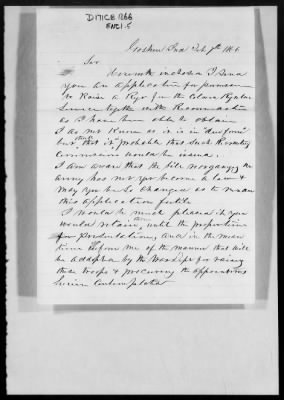 D17 ICB 1866
ENCL 5
Goshen Ind Feby 7th 1866
Sir
Herewith inclosed I send
you an application for permission
to Raise a Regt for the Colored Regular
Service together with Recommendations
as I have been able to obtain
I do not Know as it is in due form
but, think it probable that such
Commissions would be issued.
I am aware that the bill reorganizing the
Army has not yet become a law &
May yet be so changed as to render
this application futile
I would be much pleased if you
would retain them, until the proper time
for presentation, and in the mean
time inform me of the manner that will
be adopted by the War Dept for raising
these troops & procuring the appointments
herein Contemplated